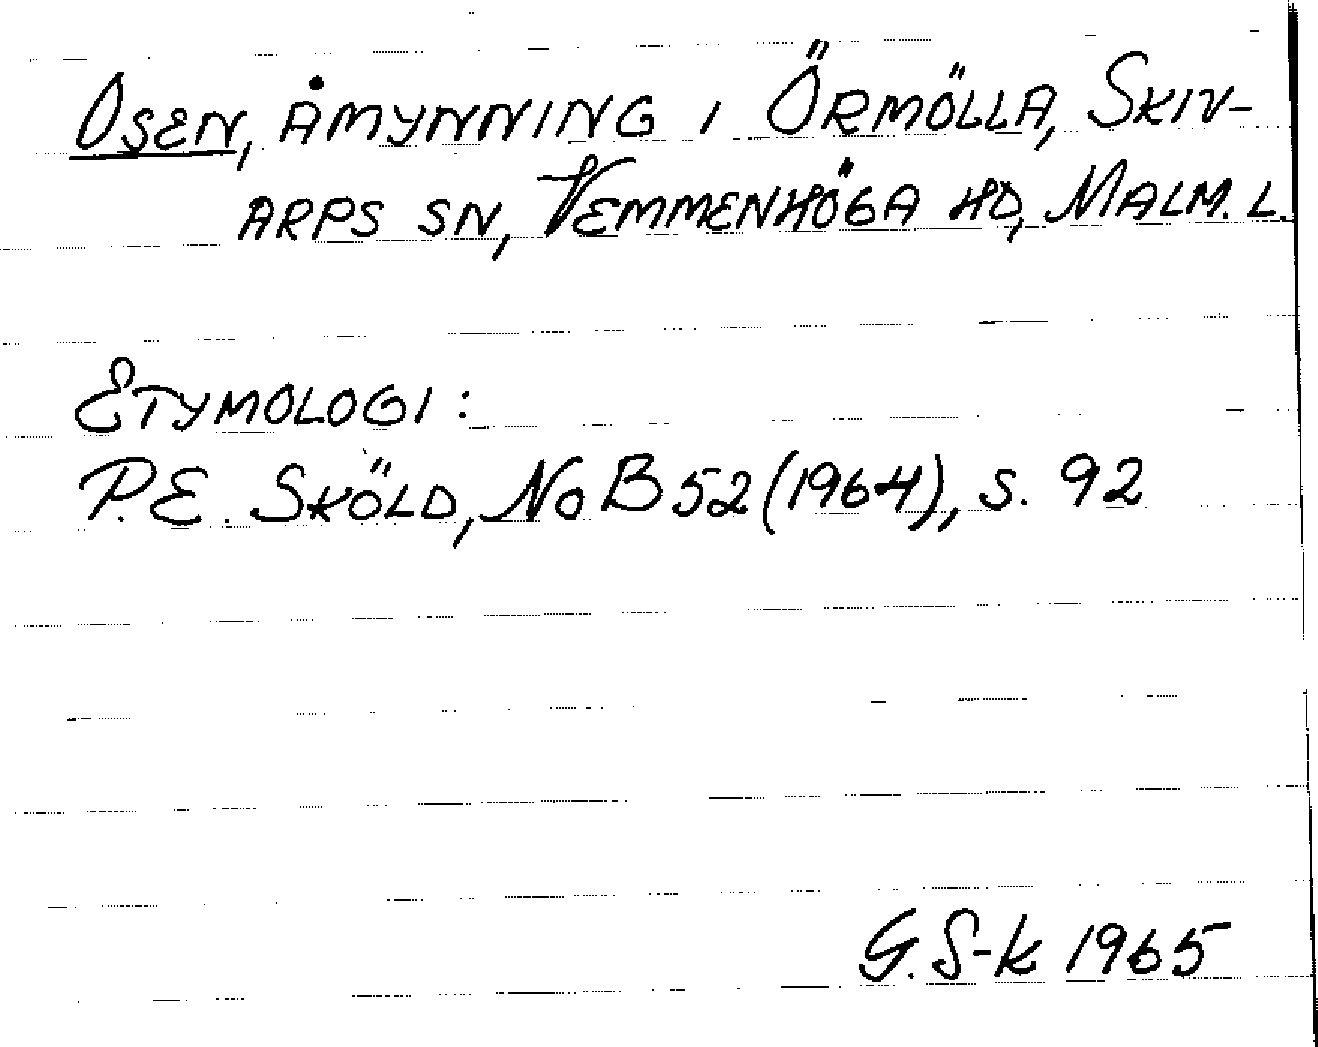 Osen, åmynning i Örmölla, Skiv-
arps sn, Vemmenhöga hd, Malm. l.
Etymologi:
P.E. Sköld, NoB 52 (1964), s. 92
G. S-k 1965